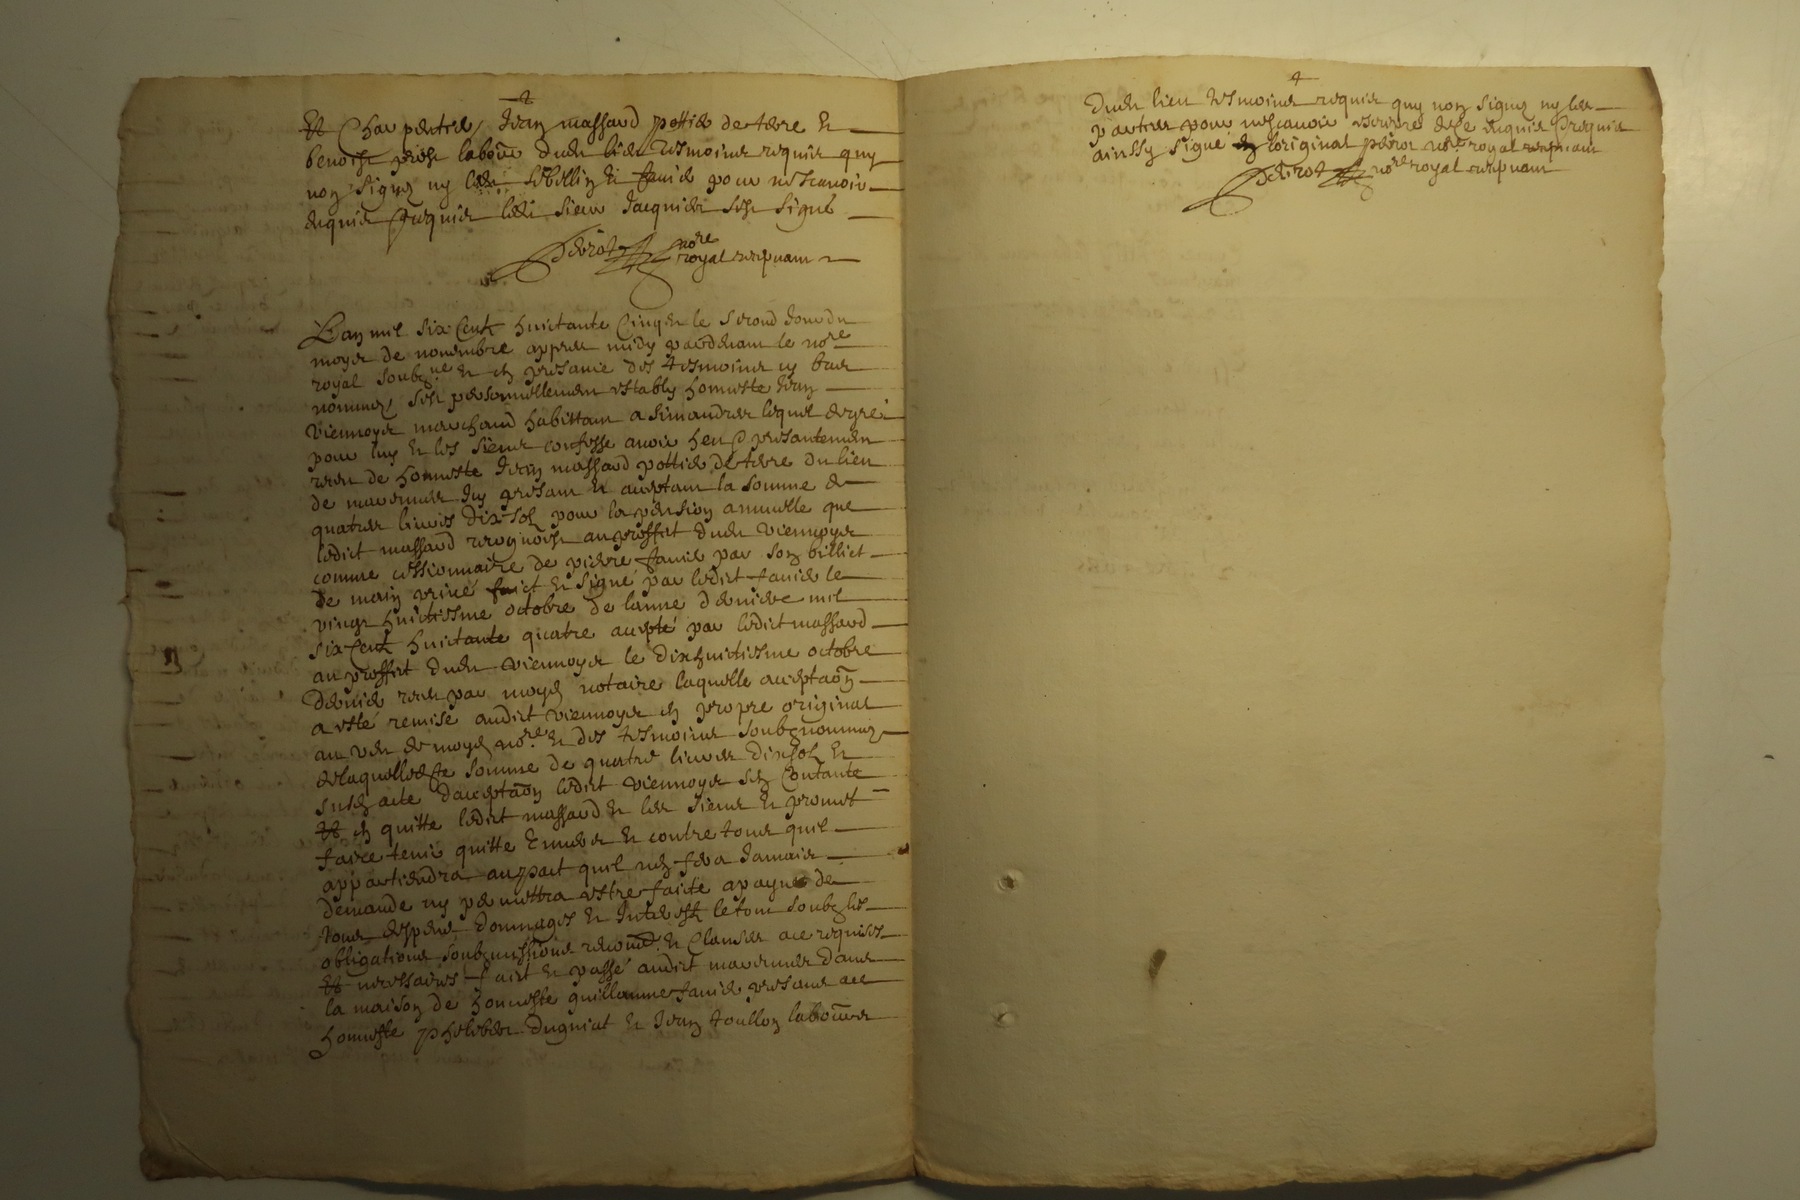 Et Charpentier, Jean massard pottier de terre Et
benoist labour dudit lieu tesmoins requis quy
non signez ny sebillin Et favier pour ne scavoir
enquis Et requis ledit sieur Jacquier sest signé
Perrot nore
royal
Lan mil six Cent huictante Cinq Et le second Jour du
moys de novembre appres midy pardevant le nore
royal soubzné Et en presance des tesmoins cy bas
nommez, sest personnellement estably honneste Jean
Viennoys marchand habittant a simandres lequel de gré
pour luy Et les siens confesse avoir heu Et presantement
receu de honneste Jean massard pottier de terre du lieu
de mavernes Icy presant Et aceptant la somme de
quatres livres dix solz pour la pension annuelle que
ledict massard recognoist au proffict dudit viennoys
comme cessionnaire de pierre favier par son billiet
de main privé faict Et signé par ledict favier le
vingt huictiesme octobre de lanné derniere mil
six Cent huictante quatre acepté par ledict massard
au proffict dudit viennoys le dixhuictiesme octobre
dernier receu par moy notaire laquelle aceptaõn
a esté remise audict viennoys en propre original
au veu de moyd nore Et des tesmoins soubz nommez
de laquelle somme de quatre livres dix solz Et
susd acte daceptaõn ledict viennoys sen Contante
Et en quitte ledict massard Et les siens Et promet
faire tenir quitte Envers Et contre tous quil
appartiendra au pact quil nen fera Jamais
demande ny permettra estre faicte a payne de
tous despens dommages Et Interestz le tout soubz les
obligations soubzmissions renond. Et Clauses a ce requises
Et necessaires faict Et passé audict mavernes dans
la maison de honneste guillaume favier presans a ce
honneste philibert dugniat Et Jean toullon laboures
dudit lieu tesmoins requis quy non signez ny les
parties pour ne scavoir escripre de ce enquis Et requis
ainssy signé En loriginal perrot nore royal
Perrot nore royal